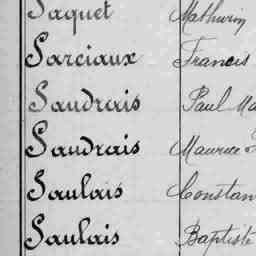 Saquet Mathurin
Sarciaux Francis
Saudrais Paul Ma
Saudrais Maurice
Saulais Constan
Saulais Baptiste